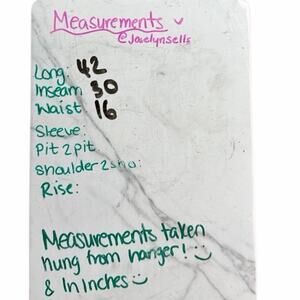 Measurements
@Jocelynsells
Long: 42
Inseam 30
Waist: 16
Sleeve:
Pit 2 pit
Shoulder 2 sho:
Rise:
Measurements taken
hung from hanger!
& In Inches